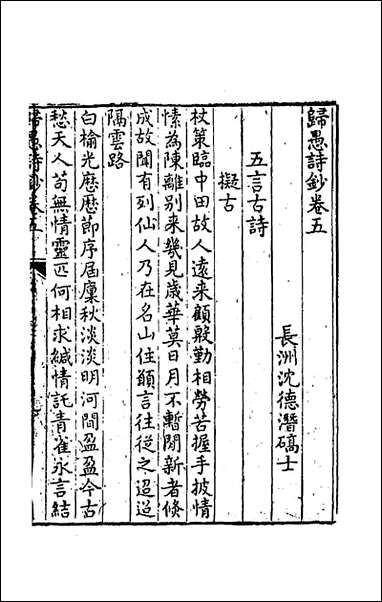 歸愚詩鈔卷五
長洲沈德潛碻士
五言古詩
擬古
杖策臨中田故人遠来顧殷勤相勞苦握手披情
愫為陳離别来幾見歳華莫日月不暫閒新者倏
成故聞有列仙人乃在名山住願言往從之迢迢
隔雲路
白榆光歴歴節序屆廪秋淡淡明河間盈盈今古
愁天人苟無情靈匹何相求緘情託青雀永言結
歸愚詩鈔卷五